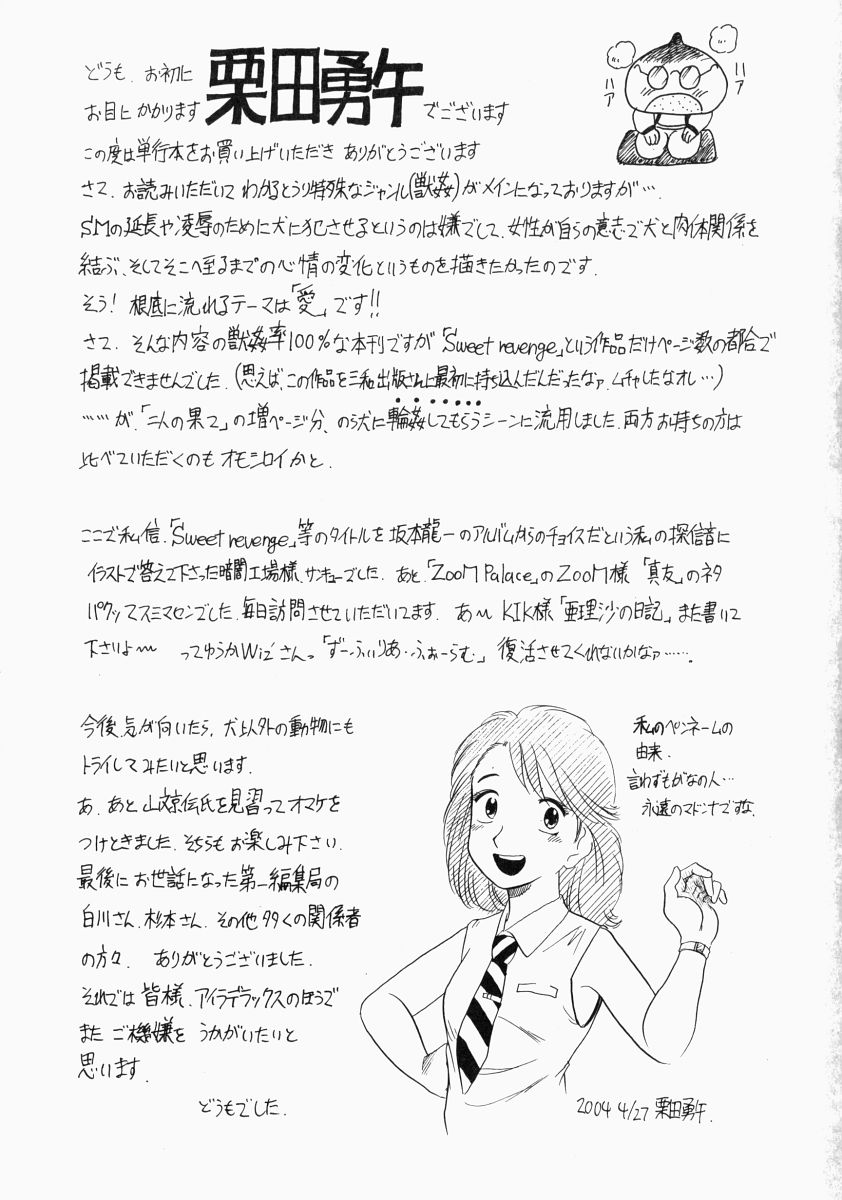 どうも、お初に
お目にかかります 栗田勇午 でございます
ハア
ハア
この度は単行本をお買い上げいただき ありがとうございます
さて、お読みいただいて わかるとうり特殊なジャンル(獣姦)がメインになっておりますが…、
SMの延長や凌辱のために犬に犯させるというのは嫌でして、女性が自らの意志で犬と肉体関係を
結ぶ、そしてそこへ至るまでの心情の変化というものを描きたかったのです.
そう! 根底に流れるテーマは「愛」です!!
さて、そんな内容の獣姦率100%な本刊ですが「Sweet revenge」という作品だけページ数の都合で
掲載できませんでした.(思えば、この作品を三和出版さんに最初に持ち込んだんだったなァ.ムチャしたなオレ…)
……が、「二人の果て」の増ページ分、のら犬に輪姦してもらうシーンに流用しました.両方お持ちの方は
比べていただくのも オモシロイかと.
ここで私信.「Sweet revenge」等のタイトルを坂本龍一のアルバムからのチョイスだという私の探信音に
イラストで答えて下さった暗闇工場様、サンキューでした. あと、「ZooM Palace」のZooM様 「真友」のネタ
パクッてスミマセンでした.毎日訪問させていただいてます. あ〜 KIK様「亜理沙の日記」また書いて
下さいよ〜 ってゆうかWiz'さんっ「ずーふぃりあ・ふぉーらむ」 復活させてくれないかなァ…….
今後、気が向いたら、犬以外の動物にも
トライしてみたいと思います.
あ、あと山文京伝氏を見習ってオマケを
つけときました.そちらもお楽しみ下さい.
最後にお世話になった第一編集局の
白川さん、杉本さん、その他多くの関係者
の方々、 ありがとうございました.
それでは皆様、アイラデラックスのほうで
また ご機嫌を うかがいたいと
思います.
どうもでした.
私のペンネームの
由来.
言わずもがなの人…
永遠のマドンナですな.
2004 4/27 栗田勇午.